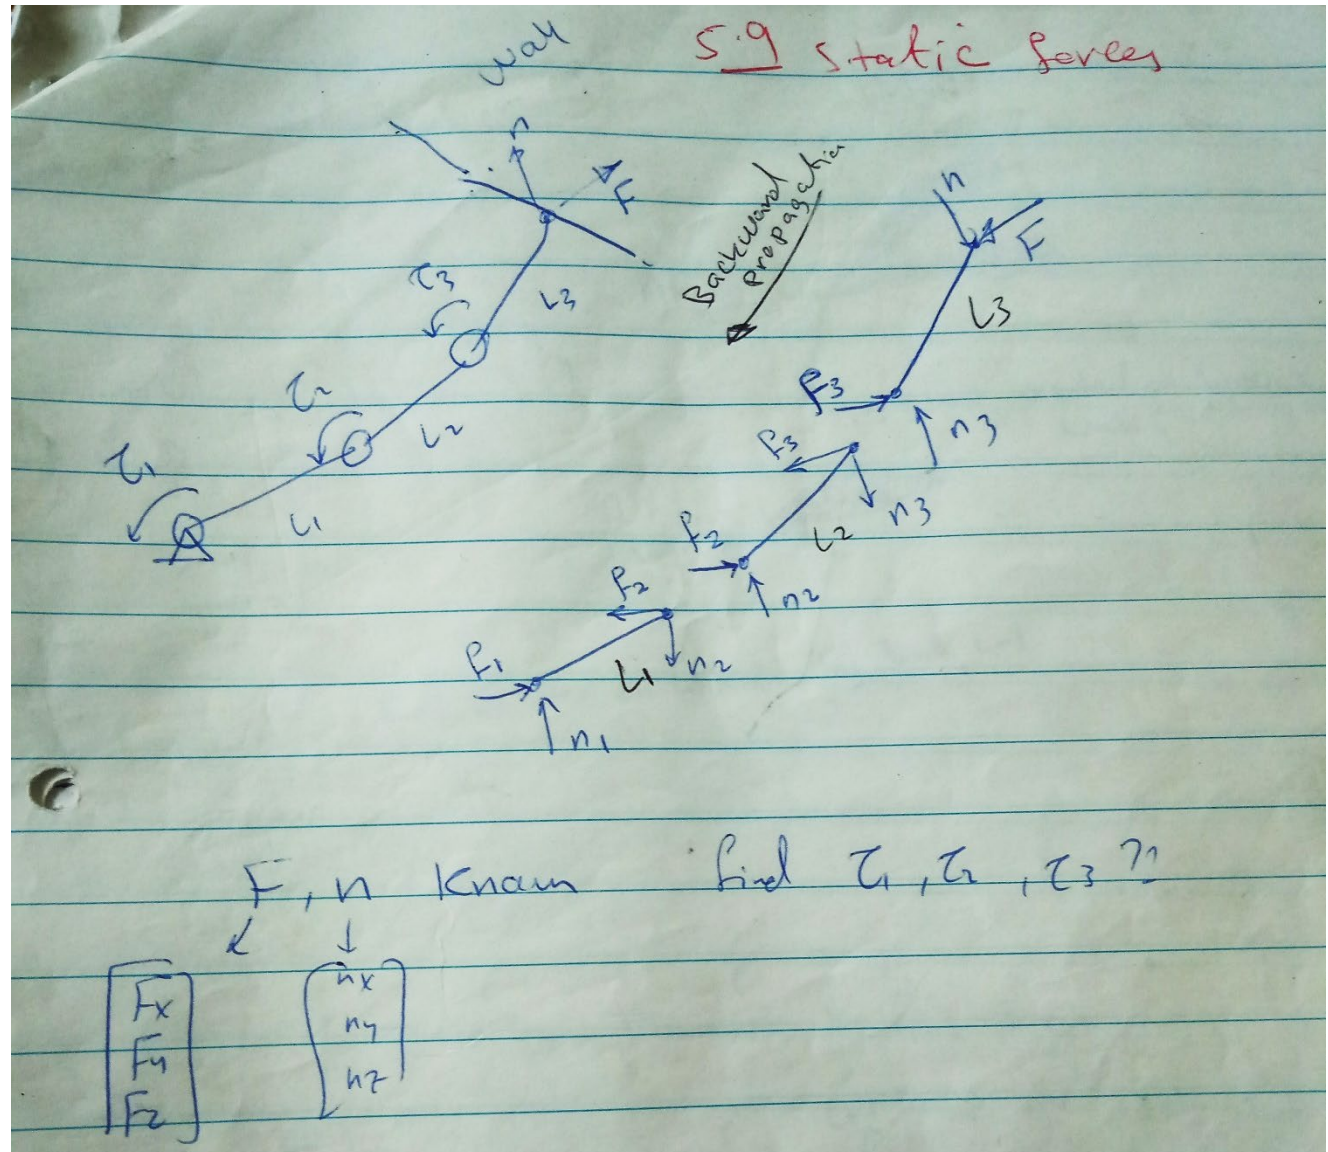 5.9 Static forces
Wall
n
F
τ3
L3
τ2
L2
τ1
L1
Backward
propagation
n
F
L3
f3
n3
f3
n3
L2
f2
n2
f2
n2
L1
f1
n1
F, n Known find τ1, τ2, τ3 ??
Fx
Fy
Fz
nx
ny
nz